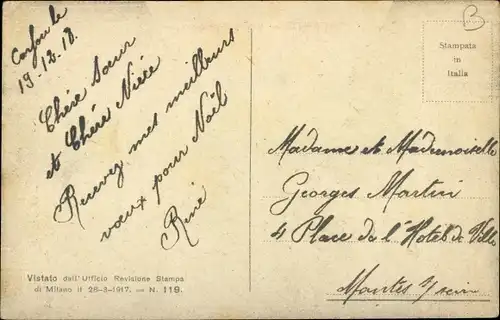 Corfou le
19-12-18.
Chère Sœur
et Chère Nièce
Recevez mes meilleurs
vœux pour Noël
René
B
Stampata
in
Italia
Madame et Mademoiselle
Georges Martin
4 Place de l'Hotel de Ville
Mantes s/sein
Vistato dall'Ufficio Revisione Stampa
di Milano il 26-3-1917. — N. 119.